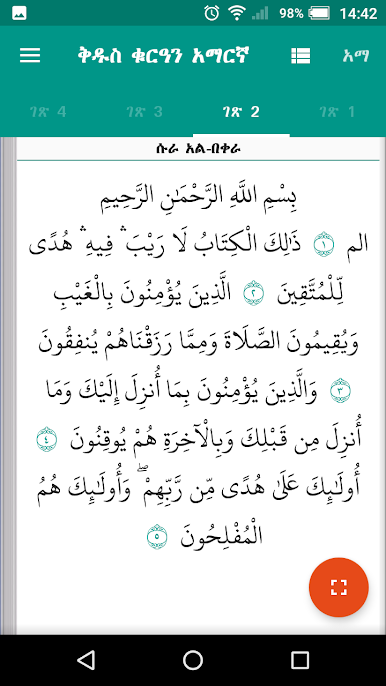 98% 14:42
ቅዱስ ቁርዓን አማርኛ አማ
ገጽ 4 ገጽ 3 ገጽ 2 ገጽ 1
ሱራ አል-በቀራ
بِسْمِ اللَّهِ الرَّحْمَٰنِ الرَّحِيمِ
الم ۝١ ذَٰلِكَ الْكِتَابُ لَا رَيْبَ ۛ فِيهِ ۛ هُدًى
لِّلْمُتَّقِينَ ۝٢ الَّذِينَ يُؤْمِنُونَ بِالْغَيْبِ
وَيُقِيمُونَ الصَّلَاةَ وَمِمَّا رَزَقْنَاهُمْ يُنفِقُونَ
۝٣ وَالَّذِينَ يُؤْمِنُونَ بِمَا أُنزِلَ إِلَيْكَ وَمَا
أُنزِلَ مِن قَبْلِكَ وَبِالْآخِرَةِ هُمْ يُوقِنُونَ ۝٤
أُولَٰئِكَ عَلَىٰ هُدًى مِّن رَّبِّهِمْ ۖ وَأُولَٰئِكَ هُمُ
الْمُفْلِحُونَ ۝٥